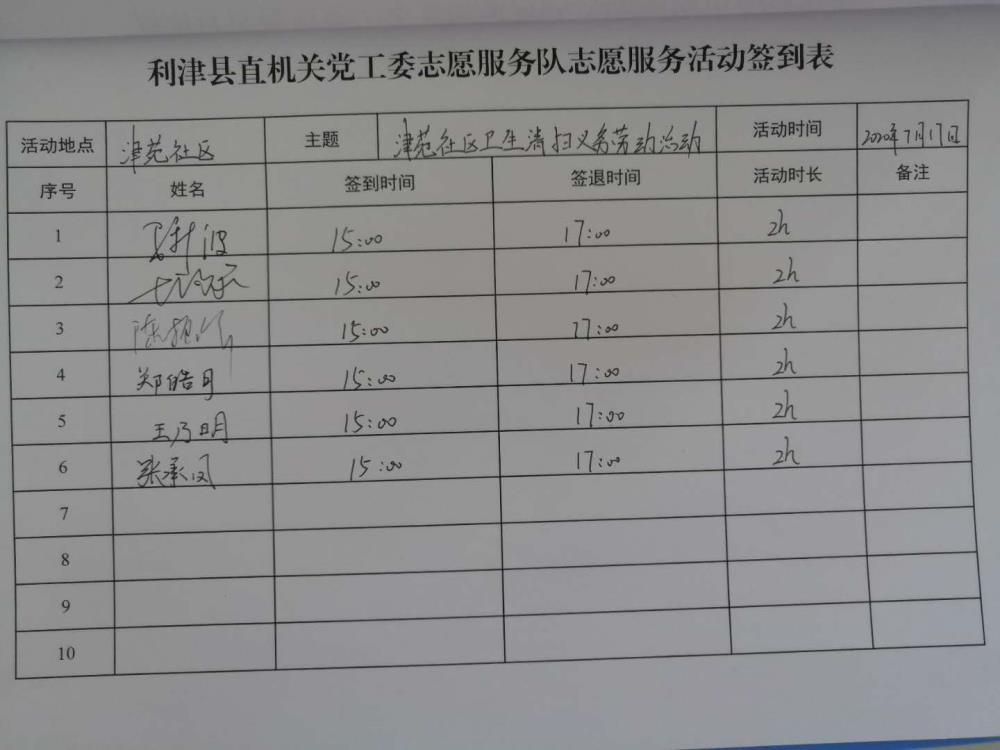 利津县直机关党工委志愿服务队志愿服务活动签到表
活动地点 津苑社区 主题 津苑社区卫生清扫义务劳动活动 活动时间 2020年7月17日
序号 姓名 签到时间 签退时间 活动时长 备注
1 15:00 17:00 2h
2 15:00 17:00 2h
3 15:00 17:00 2h
4 郑皓月 15:00 17:00 2h
5 王乃明 15:00 17:00 2h
6 张承凤 15:00 17:00 2h
7
8
9
10